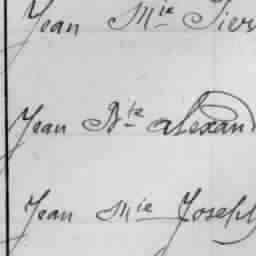 Jean Mie Pierr
Jean Bte alexand
Jean Mie Joseph